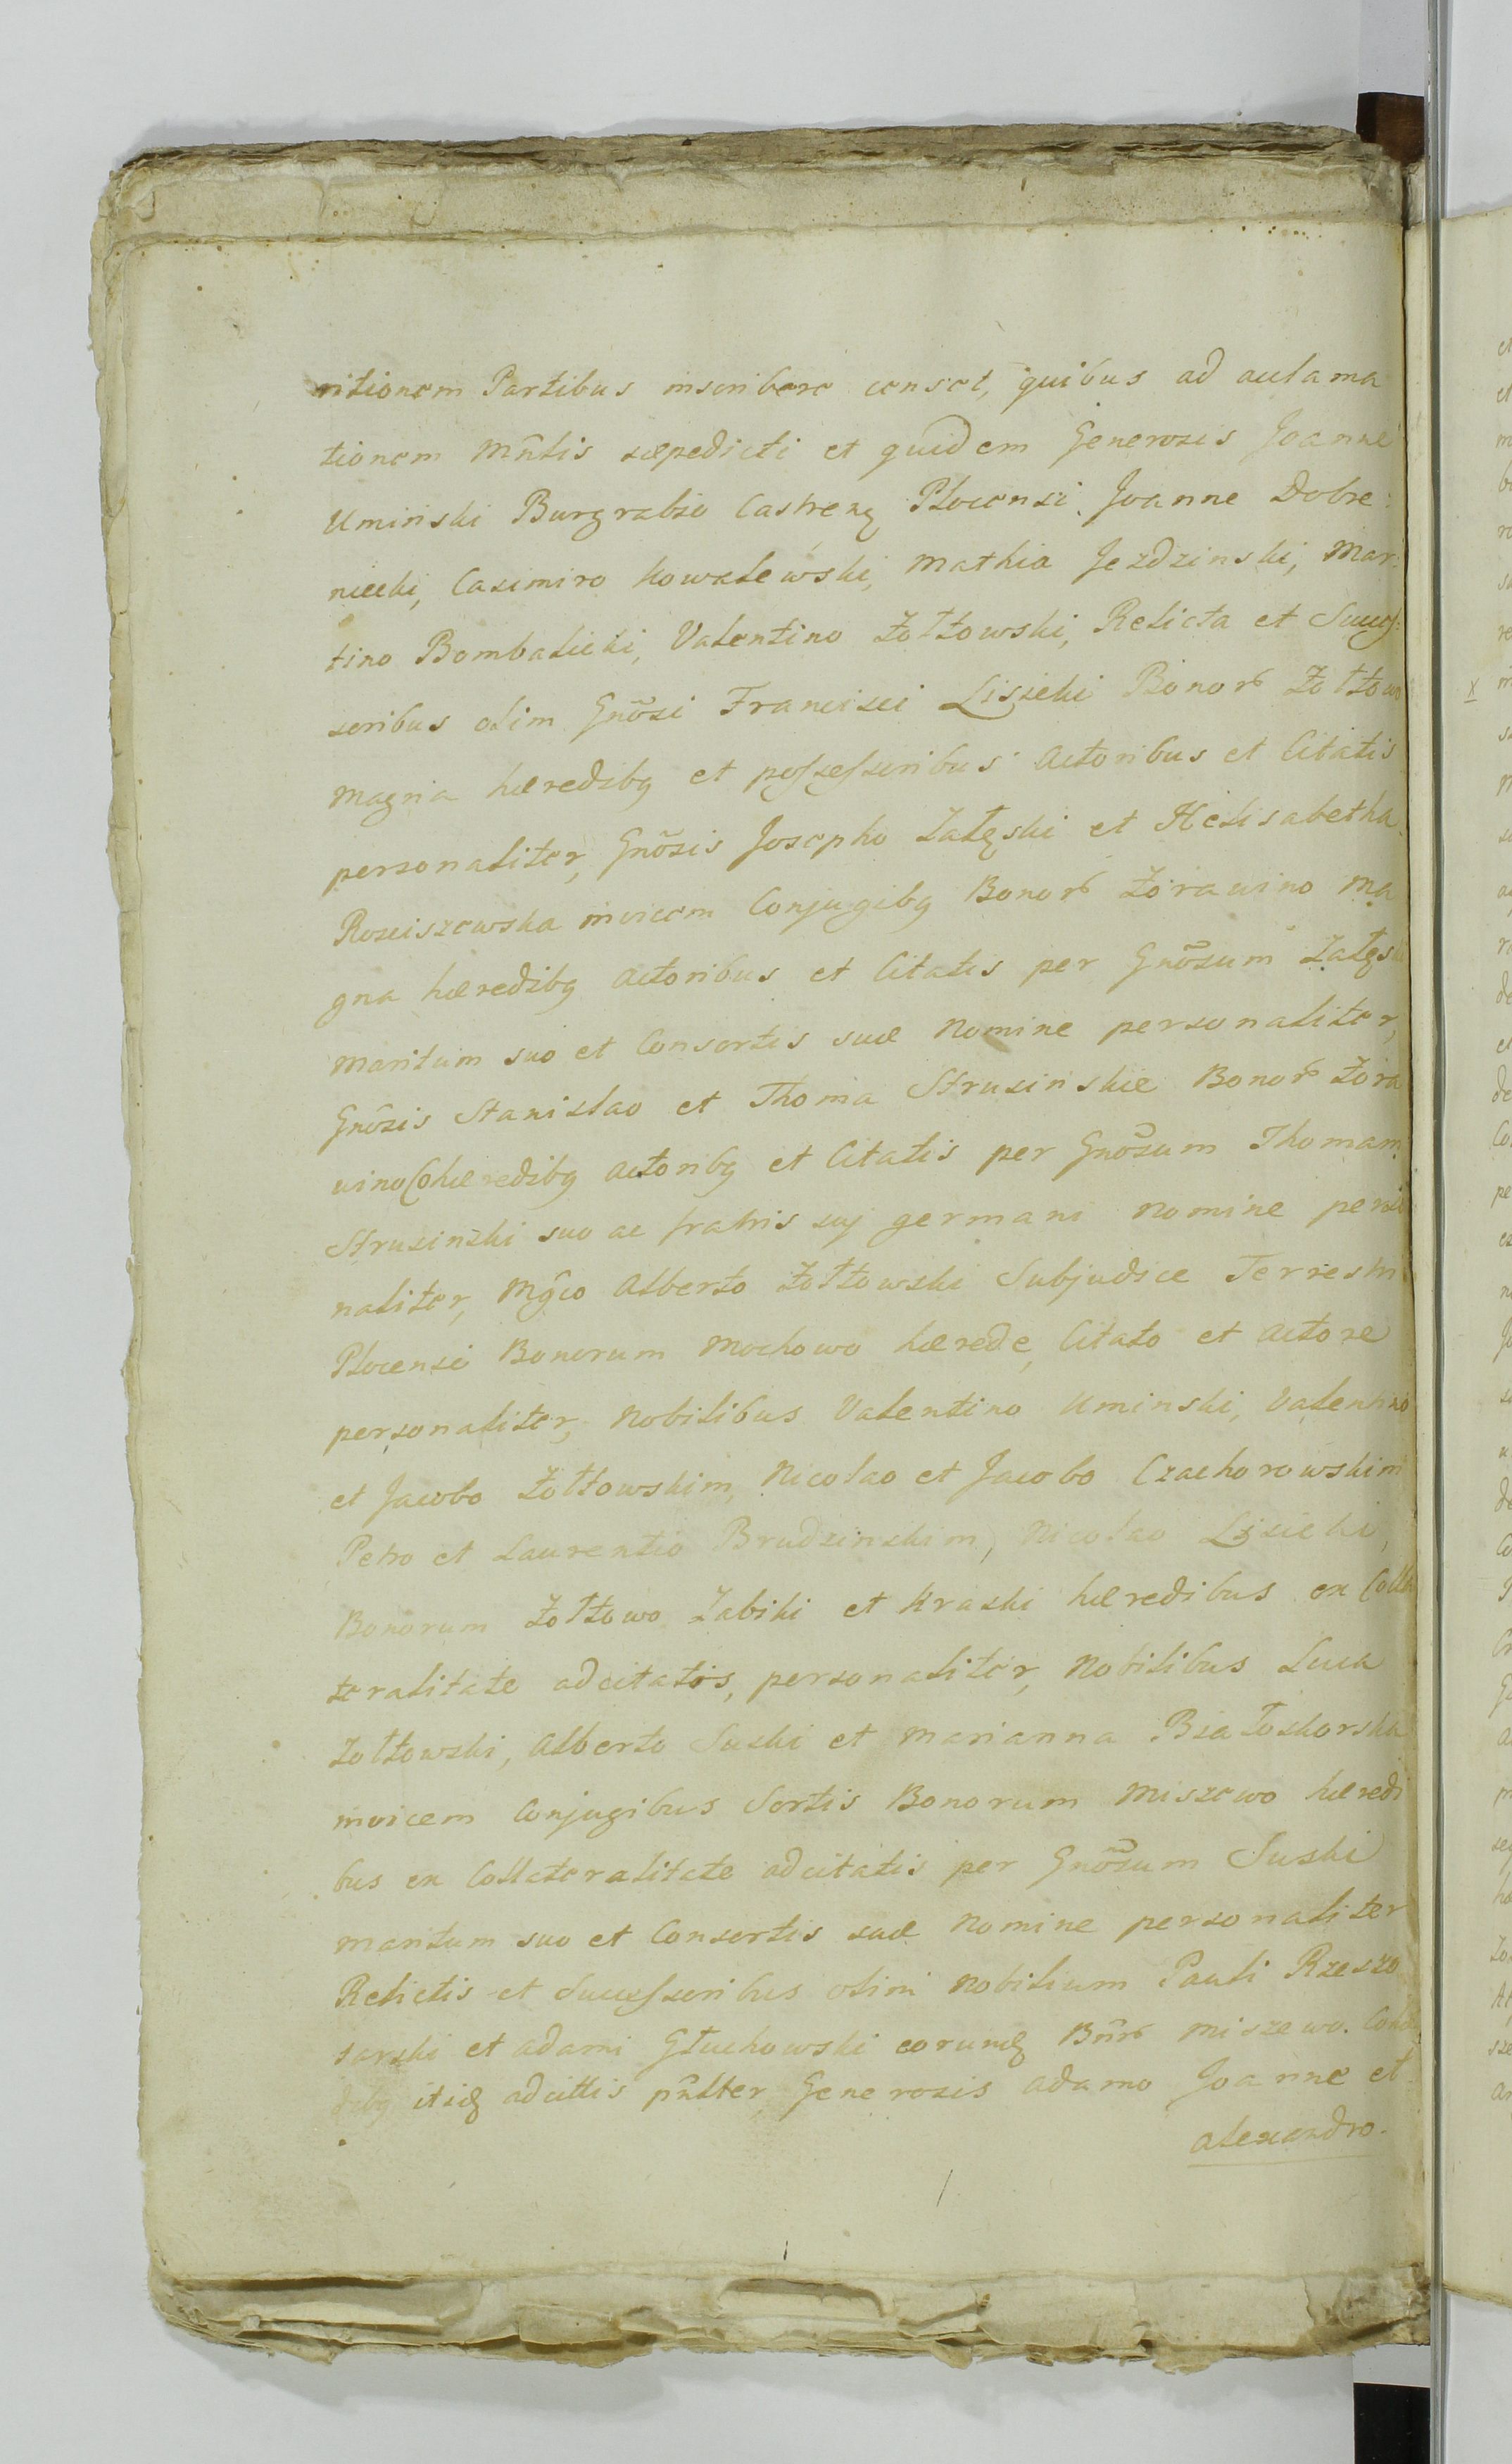 ritionem Partibus inscribere censet, quibus ad aclama
tionem Mñlis sæpedicti et quidem Generosis Joanne
Umiński Burgrabio Castreñ Plocensi. Joanne Dobre:
niecki, Casimiro Kowalewski, Mathia Jezdzinski, Mar:
tino Bombalicki, Valentino Żołtowski, Relicta et Succes:
soribus olim Gnõsi Francisci Lisicki Bonor Żołtowo
Magna hæredibq et possessoribus Actoribus et Citatis
personaliter, Gnõsis Josepho Załęski et Helisabetha
Rosciszewska invicem Conjugibq Bonor Żórawino Ma
gna hæredibq Actoribus et Citatis per Gnõsum Załęski
Maritum suo et Consortis suæ Nomine personaliter,
Gnõsis Stanislao et Thoma Strusinskie Bonor Żora
wino Cohæredibq Actoribq et Citatis per Gnõsum Thomam
Strusinski suo ac fratris sui germani Nomine perso
naliter, Mg̃co Alberto Żołtowski Subjudice Terrestri
Plocensi Bonorum Mochowo hærede, Citato et Actore
personaliter, Nobilibus Valentino Uminski, Valentino
et Jacobo Żołtowskim, Nicolao et Jacobo Czachorowskim
Petro et Laurentio Brudzinskim, Nicolao Lisicki,
Bonorum Żołtowo Żabiki et Kraski hæredibus ex Colla
teralitate adcitatis, personaliter, Nobilibus Luca
Zołtowski, Alberto Suski et Marianna Białoskorska
invicem Conjugibus Sortis Bonorum Miszewo hæredi
bus ex Collateralitate adcitatis per Gnõsum Suski
maritum suo et Consortis suæ Nomine personaliter
Relictis et Successoribus olim Nobilium Pauli Rzeszo
tarski et Adami Głuchowski eorundq Bñr Miszewo.
itidq adcittis pñlter Generosis Adamo Joanne et
Alexandro.